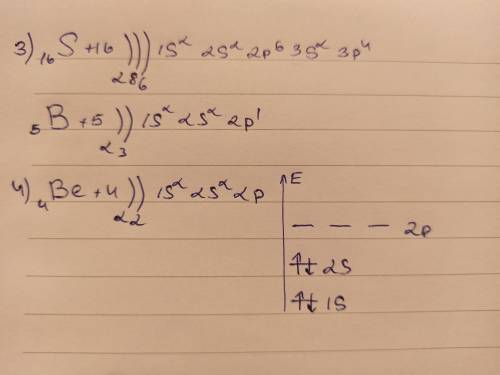 3) ₁₆S +16 ))) 1S² 2S² 2p⁶ 3S² 3p⁴
2 8 6
₅B +5 )) 1S² 2S² 2p¹
2 3
4) ₄Be +4 )) 1S² 2S² 2p
2 2
E
— — — 2p
↑↓ 2S
↑↓ 1S